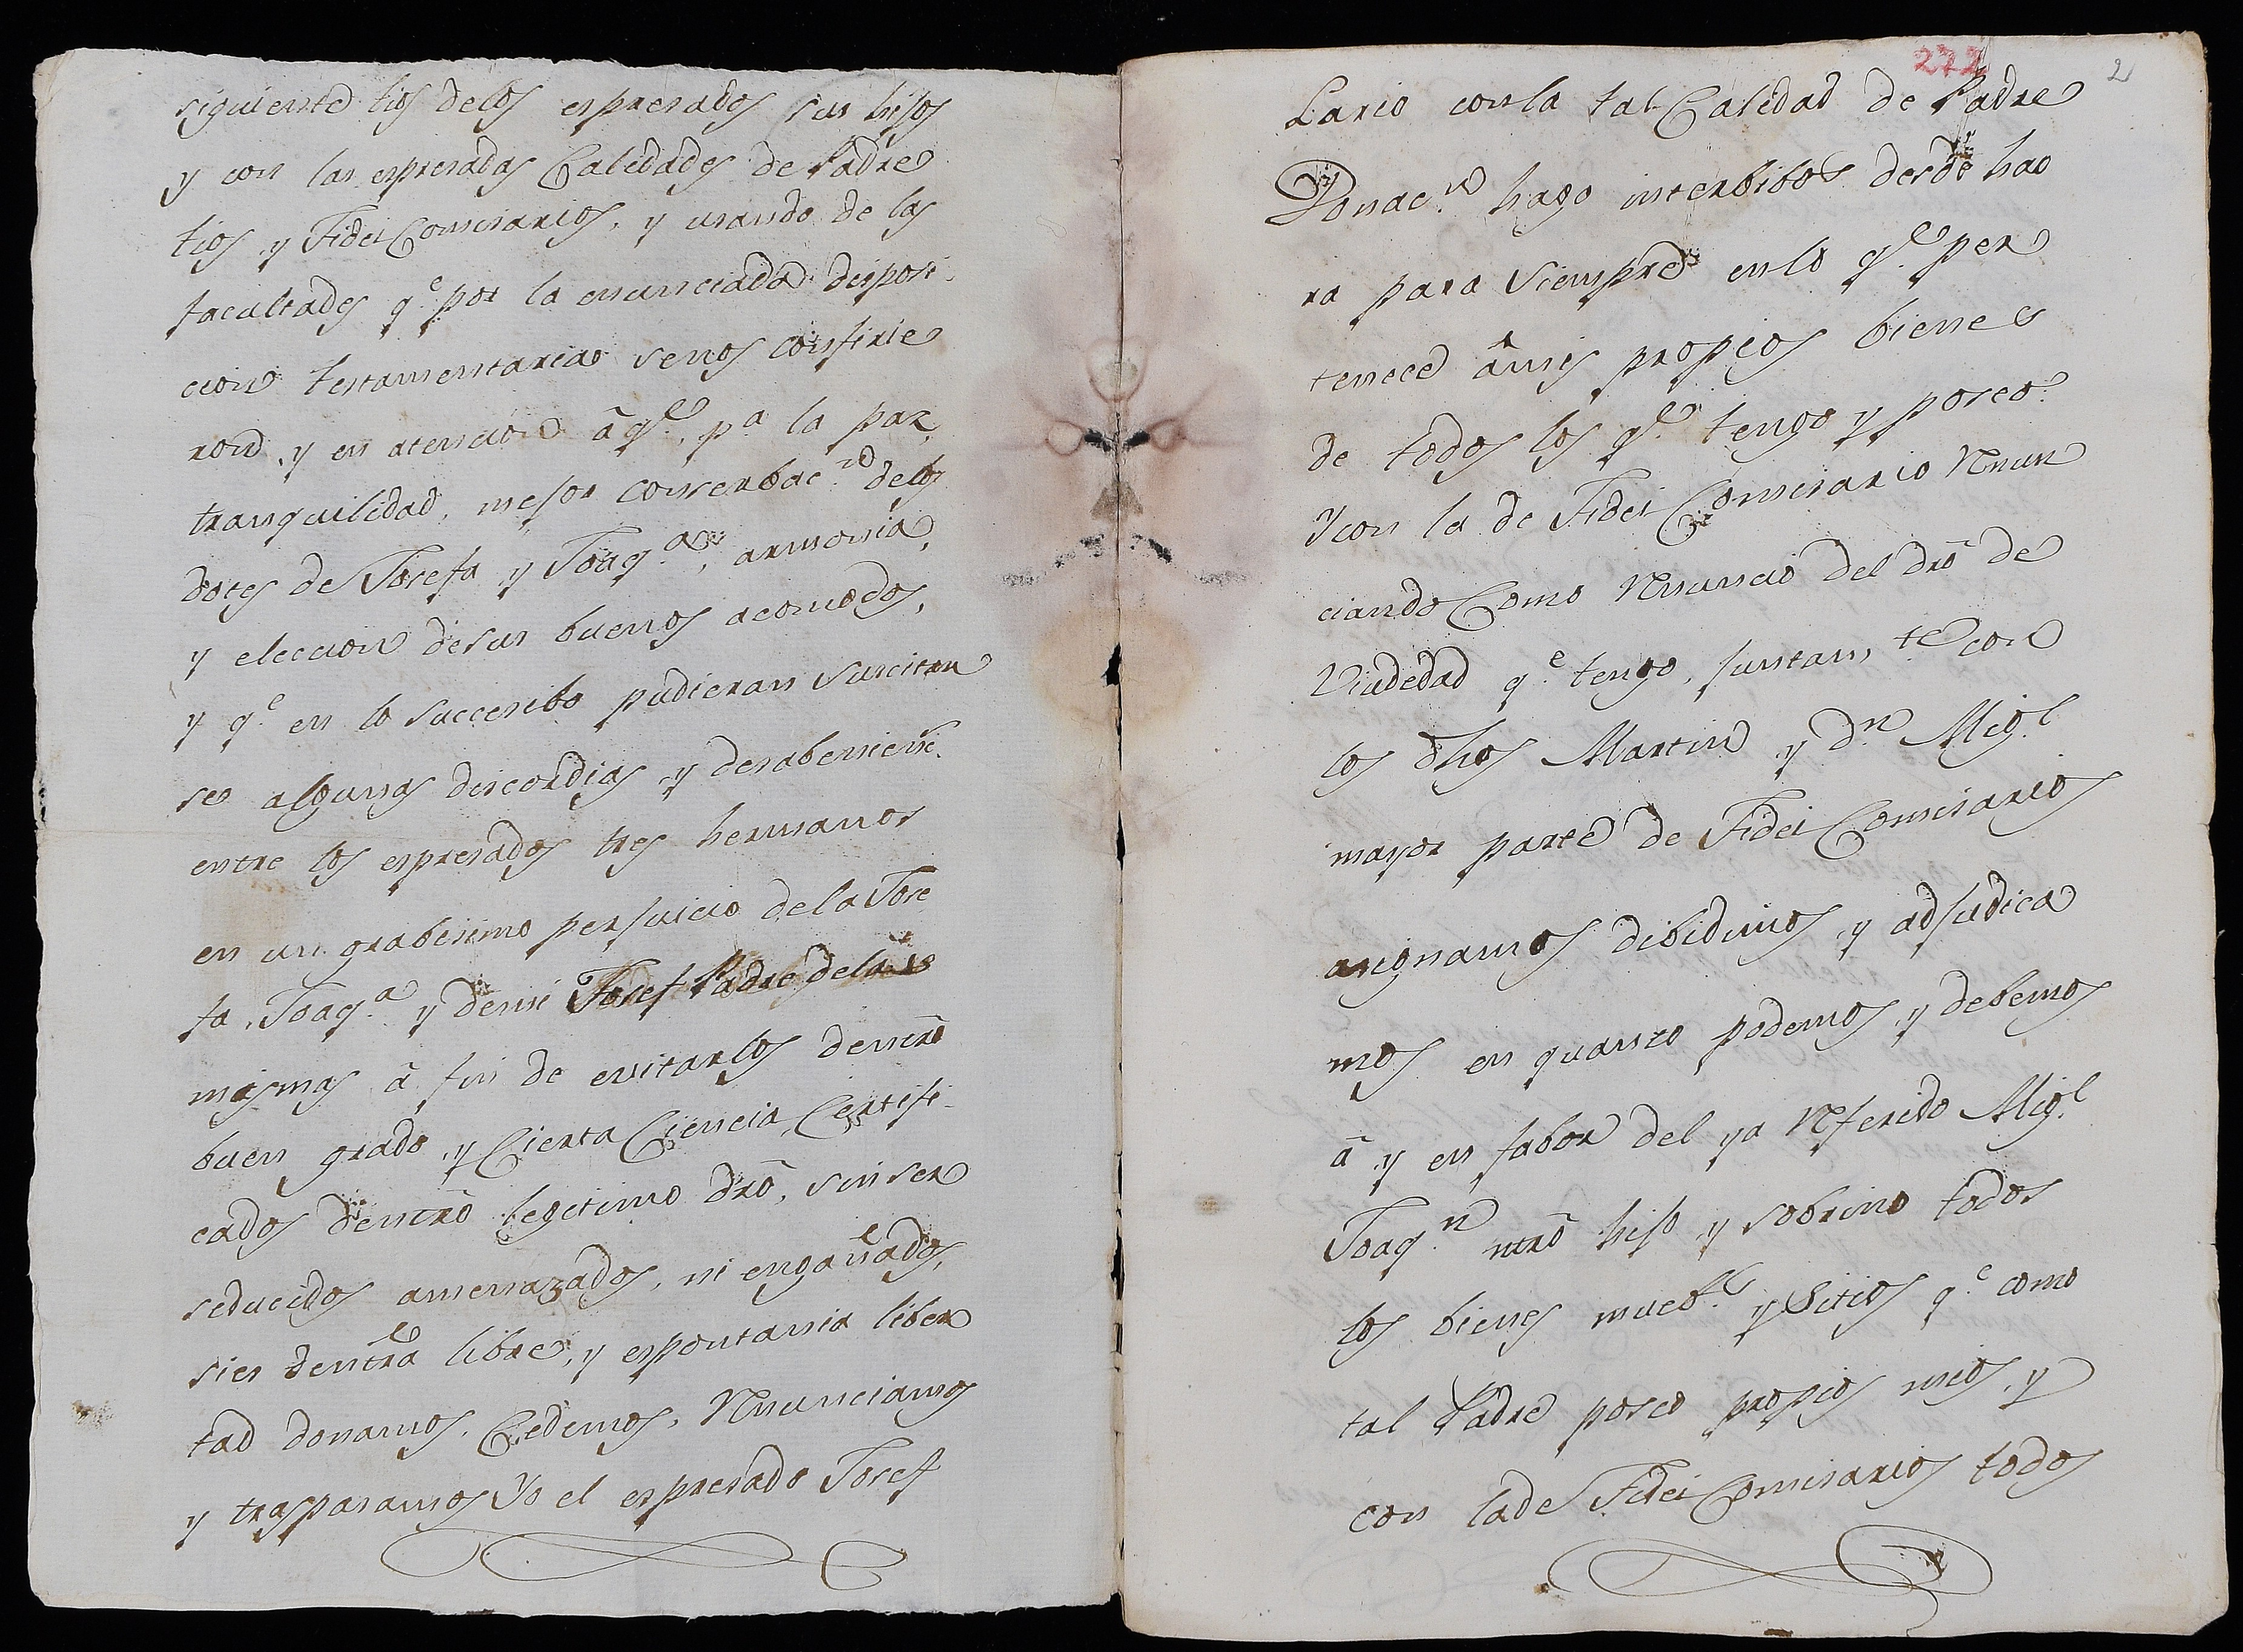 siguiente tios delos espresados sus hijos
y con las espresadas Calidades de Padre
tios y FideiComisarios, y usando de las
facultades q.e por la enunciada disposi-
cion testamentaria senos confirie
ron, y en atencion â q.e p.a la paz,
tranquilidad, mejor conserbac.on delos
dotes de Josefa y Joaq.a, armonia,
y eleccion desus buenos acomodos,
y q.e en lo succesibo pudieran suscitar
se algunas discordias y desabenienc.s
entre los espresados tres hermanos
en un grabisimo perjuicio dela Jose
fa, Joaq.a y demi Josef Padre delas
mismas â fin de evitarlos denrô
buen grado, y Cierta Ciencia, Certifi-
cados denrô legitimo drô, sin ser
seducidos amenazados, ni engañados,
sies denrâ libre, y espontania liber
tad donamos, Cedemos, Renunciamos
y traspasamos Yo el espresado Josef
272 2
Lario conla tal Calidad de Padre
Donac.on hago interbibos desde hao
ra para Siempre enlo q.e per
tenece âmis propios bienes
de todos los q.e tengo y poseo.
Y con la de Fidei Comisario Renun
ciando Como Renuncio del drô de
Viudedad q.e tengo, juntam.te con
los dhos Martin y d.n Mig.l
mayor parte de Fidei Comisarios
asignamos dibidimos y adjudica
mos en quanto podemos y debemos
â y en fabor del ya Referido Mig.l
Joaq.n ntrô hijo y sobrino todos
los bienes mueb.s y Sitios q.e como
tal Padre poseo propios mios, y
con lade Fidei Comisarios todos